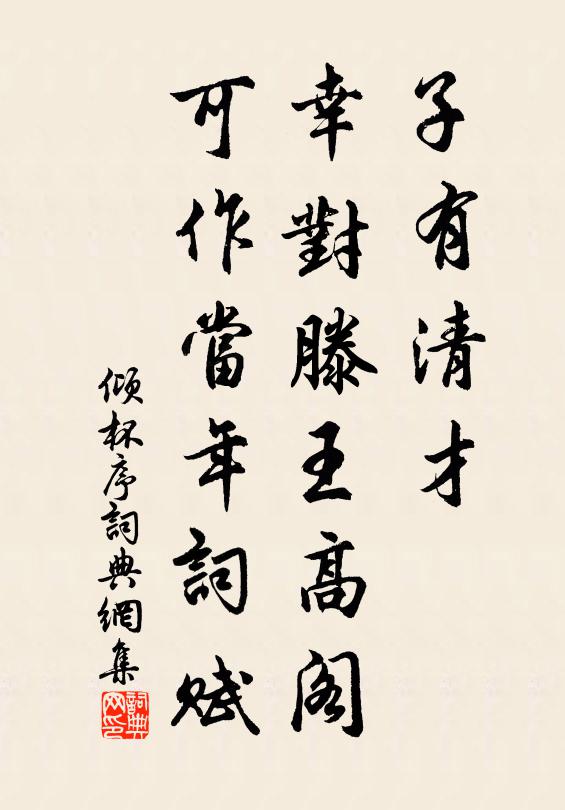 子有清才
幸對滕王高閣
可作當年詞賦
傾杯序詞典網集
詞典网印